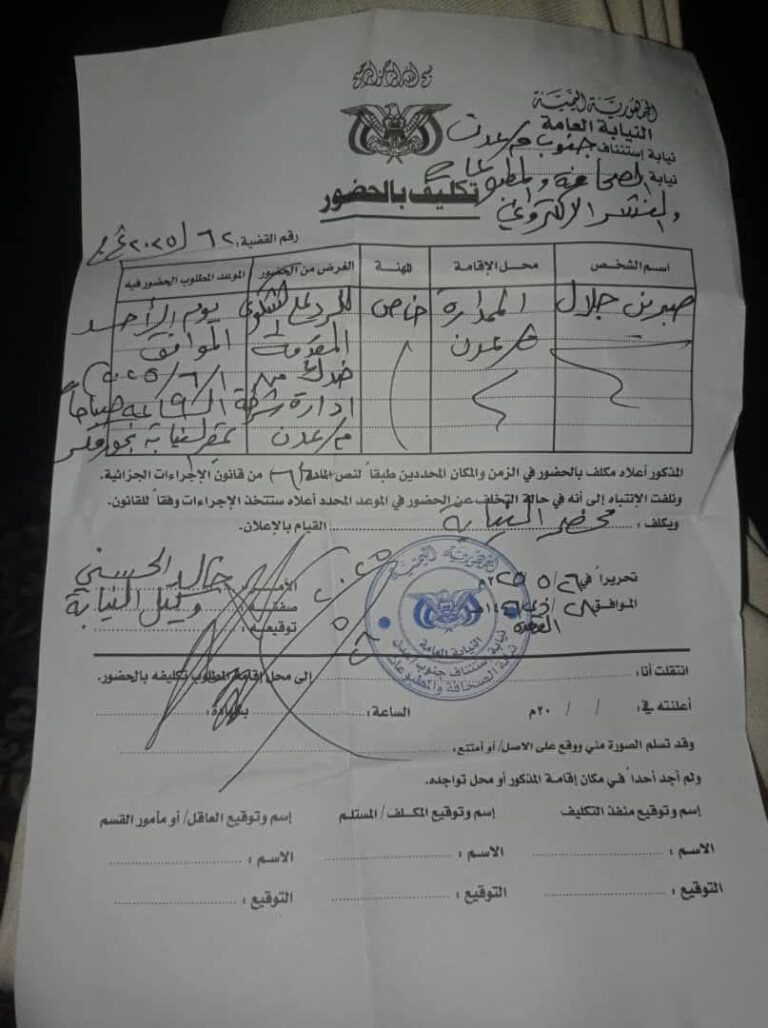 بسم الله الرحمن الرحيم
الجمهورية اليمنية
النيابة العامة
نيابة إستئناف جنوب م/عدن
نيابة الصحافة والمطبوعات
والنشر الإلكتروني
تكليف بالحضور
رقم القضية: ٦٢ / ٢٠٢٥
اسم الشخص محل الإقامة المهنة الغرض من الحضور الموعد المطلوب الحضور فيه
صبرين جلال الممدارة خاص للرد على الشكوى يوم الأحد
م/عدن المقدمة الموافق
ضدك من ١/٦/٢٠٢٥م
ادارة شرطة الساعة ٩ صباحاً
م/عدن بمقر النيابة بخورمكسر
المذكور أعلاه مكلف بالحضور في الزمن والمكان المحددين طبقاً لنص المادة (٦) من قانون الإجراءات الجزائية.
ونلفت الإنتباه إلى أنه في حالة التخلف عن الحضور في الموعد المحدد أعلاه ستتخذ الإجراءات وفقاً للقانون.
ويكلف : محضر النيابة القيام بالإعلان.
تحريراً في ٢٦/٥/٢٠٢٥م
الموافق ٢٨/ذي القعدة
الأسم: خالد الحسني
صفته: وكيل النيابة
توقيعه:
الجمهورية اليمنية
النيابة العامة
نيابة استئناف جنوب عدن
نيابة الصحافة والمطبوعات
انتقلت أنا: إلى محل إقامة المطلوب تكليفه بالحضور.
أعلنته في: / / ٢٠م الساعة: بشهادة:
وقد تسلم الصورة مني ووقع على الاصل/ أو أمتنع:
ولم أجد أحداً في مكان إقامة المذكور أو محل تواجده.
إسم وتوقيع منفذ التكليف إسم وتوقيع المكلف/ المستلم إسم وتوقيع العاقل/ أو مأمور القسم
الاسم : الاسم : الاسم :
التوقيع : التوقيع : التوقيع :